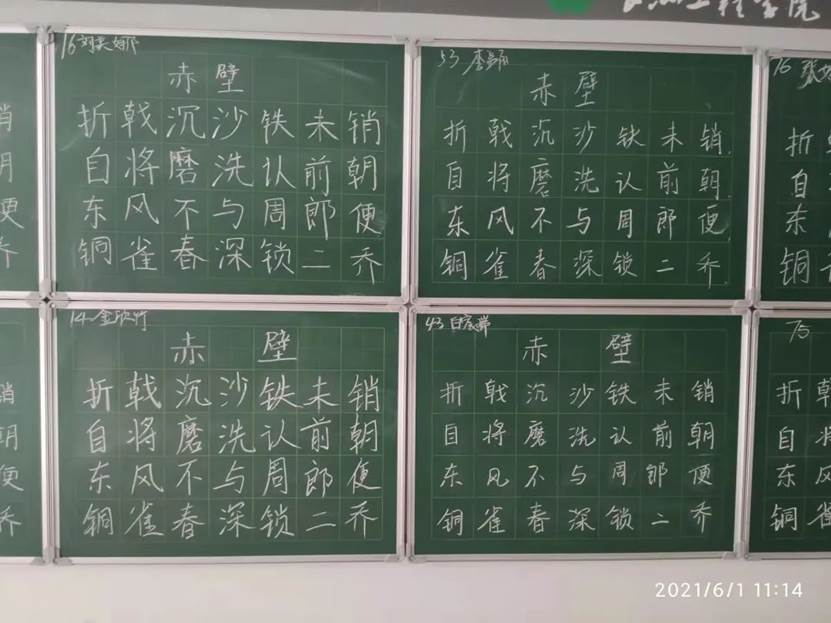 工程学院
16 刘美娜
赤壁
折戟沉沙铁未销
自将磨洗认前朝
东风不与周郎便
铜雀春深锁二乔
53 李
赤壁
折戟沉沙铁未销
自将磨洗认前朝
东风不与周郎便
铜雀春深锁二乔
76 张
折
自
东
铜
销
朝
便
乔
14 金欣竹
赤壁
折戟沉沙铁未销
自将磨洗认前朝
东风不与周郎便
铜雀春深锁二乔
43 白
赤壁
折戟沉沙铁未销
自将磨洗认前朝
东风不与周郎便
铜雀春深锁二乔
75
折戟
自将
东风
铜雀
销
朝
便
乔
2021/6/1 11:14